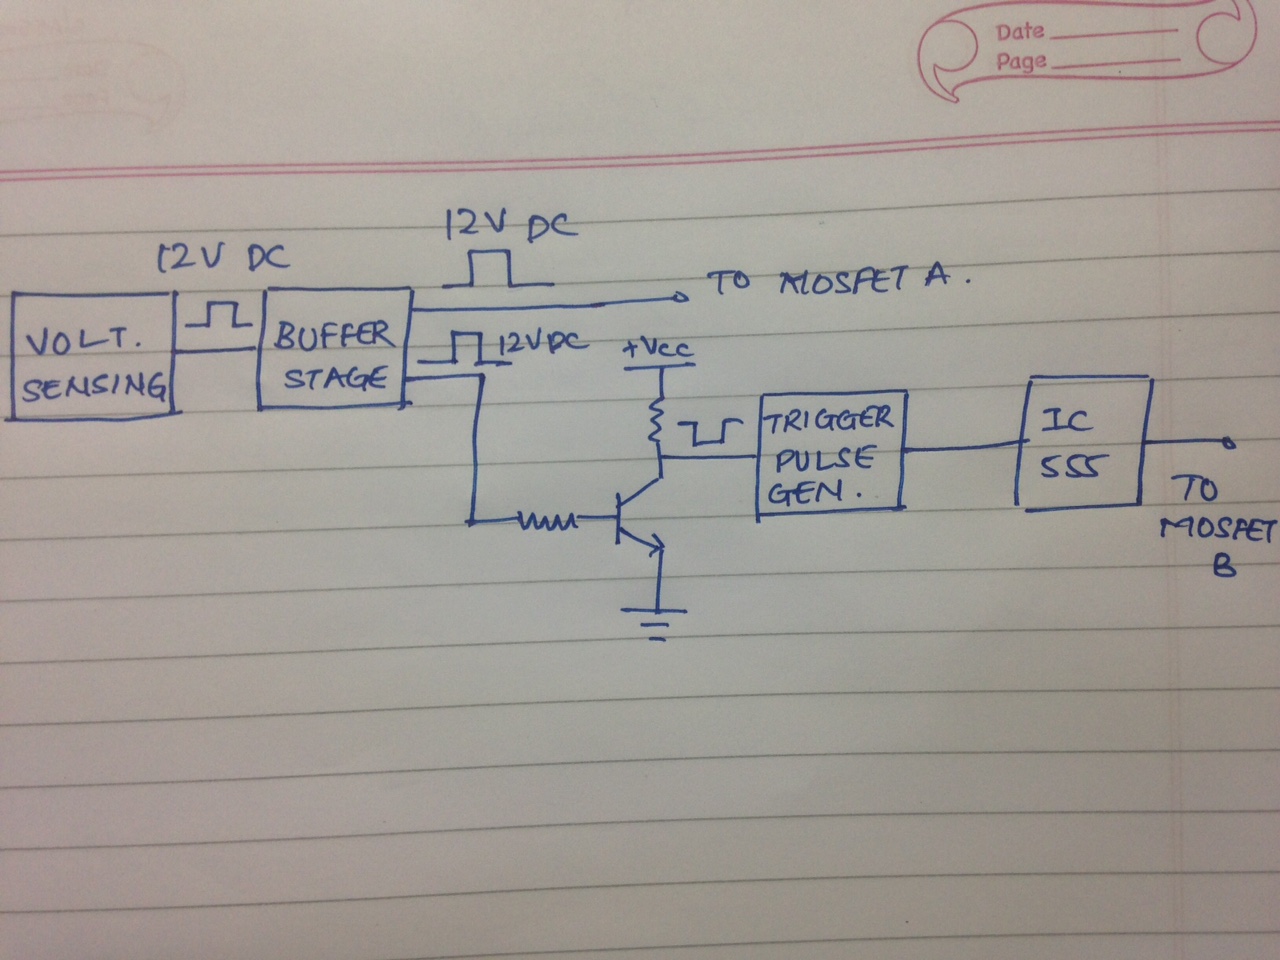 Date
Page
12V DC
12V DC
TO MOSFET A.
VOLT.
SENSING
BUFFER
STAGE
12VDC
+Vcc
TRIGGER
PULSE
GEN.
IC
555
TO
MOSFET
B